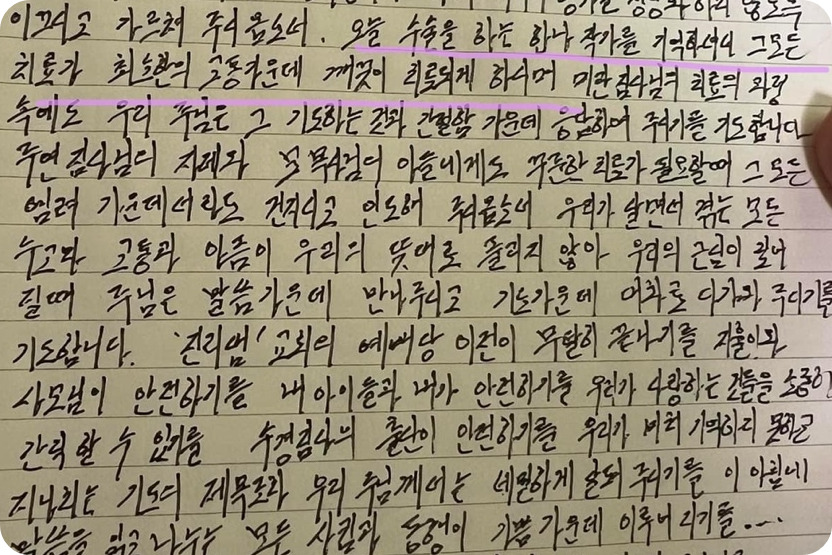 이끄시고 가르쳐 주시옵소서. 오늘 수술을 하는 하나 작가를 기억하셔서 그 모든
치료가 최소한의 고통가운데 깨끗이 치료되게 하시며 미란 집사님의 치료의 과정
속에도 우리 주님은 그 기도하는 것과 간절함 가운데 응답하여 주시기를 기도합니다
주연 집사님의 지체와 목사님의 아들에게도 꾸준한 치료가 필요할때 그 모든
염려 가운데서라도 건지시고 인도해 주시옵소서 우리가 살면서 겪는 모든
수고와 고통과 아픔이 우리의 뜻대로 풀리지 않아 우리의 근심이 깊어
질때 주님은 말씀가운데 만나주시고 기도가운데 여화로 다가와 주시기를
기도합니다. '진리샘' 교회의 예배당 이전이 무탈히 끝나기를 지훈이와
사모님이 안전하기를 내 아이들과 내가 안전하기를 우리가 사랑하는 것들을 소중히
간직 할 수 있기를 수경집사의 출산이 안전하기를 우리가 미처 기억하지 못하고
지나치는 기도의 제목조차 우리 주님께서는 세밀하게 살펴 주시기를 이 아침에
말씀을 읽고 나누는 모든 사람과 동행이 기쁨 가운데 이루어 지기를....